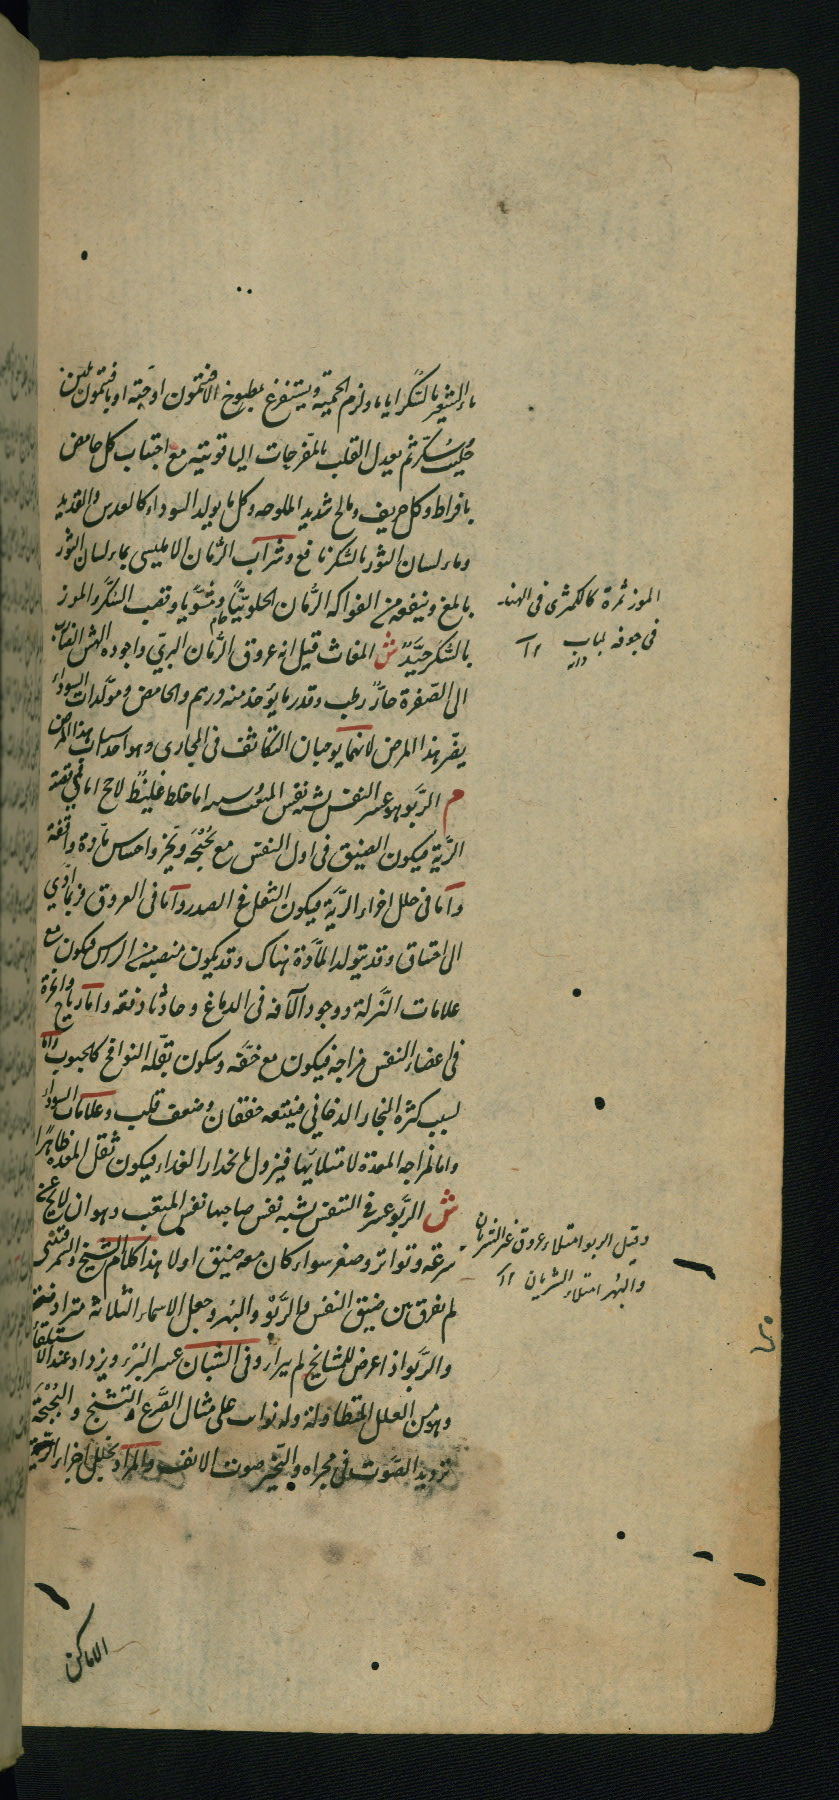 ماء الشعير بالسكر اياما ولزم الحمية ويستفرغ بمطبوخ الافتيمون او حبّه او بافتيمون بلبن
حليب بسكر ثم يعدل القلب بالمفرحات الياقوتية مع اجتناب كل حامض
بافراط وكل حريف ومالح شديد الملوحه وكل ما يولد السوداء كالعدس والقديد
وماء لسان الثور بالسكر نافع وشراب الرمان الامليسى بماء لسان الثور
بالغ وينفعه من الفواكه الرمان الحلو نيّا ومشويا وقصب السكر والموز
بالسكر جيّد ش المغاث قيل انه عروق الرمان البرّي واجوده الهش
الى الصفرة حارّ رطب وقدر ما يؤخذ منه درهم والحامض ومولدات السوداء
يضر بهذا المرض لانهما يوجبان التكاثف فى المجارى وهو احد اسباب هذا المرض
م الربو هو عسر النفس يشبه نفس المتعب سببه اما خلط غليظ لاحج اما فى قصبة
الرّية فيكون الضيق فى اول النفس مع بحبحة ونخر واحساس بمادة واقفة
واما فى خلل اجزاء الرّية فيكون الثقل فى الصدر واما فى العروق فربما ادّي
الى اختناق وقد يتولد المادة هناك وقد يكون منصبه من الراس فيكون مع
علامات النّزلة ووجود الآفه فى الدماغ وحادثا دفعه واما رياح وابخرة
فى اعضاء النفس مزاجه فيكون مع خفّه وسكون بقلة النوافخ كالحبوب واما
لسبب كثرة البخار الدخاني فيتبعه خفقان وضعف قلب وعلامات السوداء
واما لمزاجه المعدة لامتلائها فيزول بانحدار الغذاء فيكون ثقل المعدة ظاهرا
ش الربو عسر فى التنفس يشبه نفس صاحبها نفس المتعب وهو ان لا يخ عن
سرعه وتواتر وصغر سواء كان معه ضيق او لا هذا كلام الشيخ والسمرقندى
لم يفرق بين ضيق النفس والربو والبهر وجعل الاسماء الثلاثة مترادفة
والربو اذا عرض للمشايخ لم يبراء وفى الشبان عسر البرء ويزداد عند الاستلقاء
وهو من العلل المتطاولة وله نوايب على مثال الصّرع والتشنج والبُحبَحة
ترديد الصوت فى مجراه والنخير صوت الانف والمراد بخلل اجزاء الرّية
الاماكن
الموز ثمرة كالكمثرى فى الهند
فى جوفه لباب ١٢
دانه
وقيل الربو امتلاء عروق غير الشريان
والبهر امتلاء الشريان ١٢